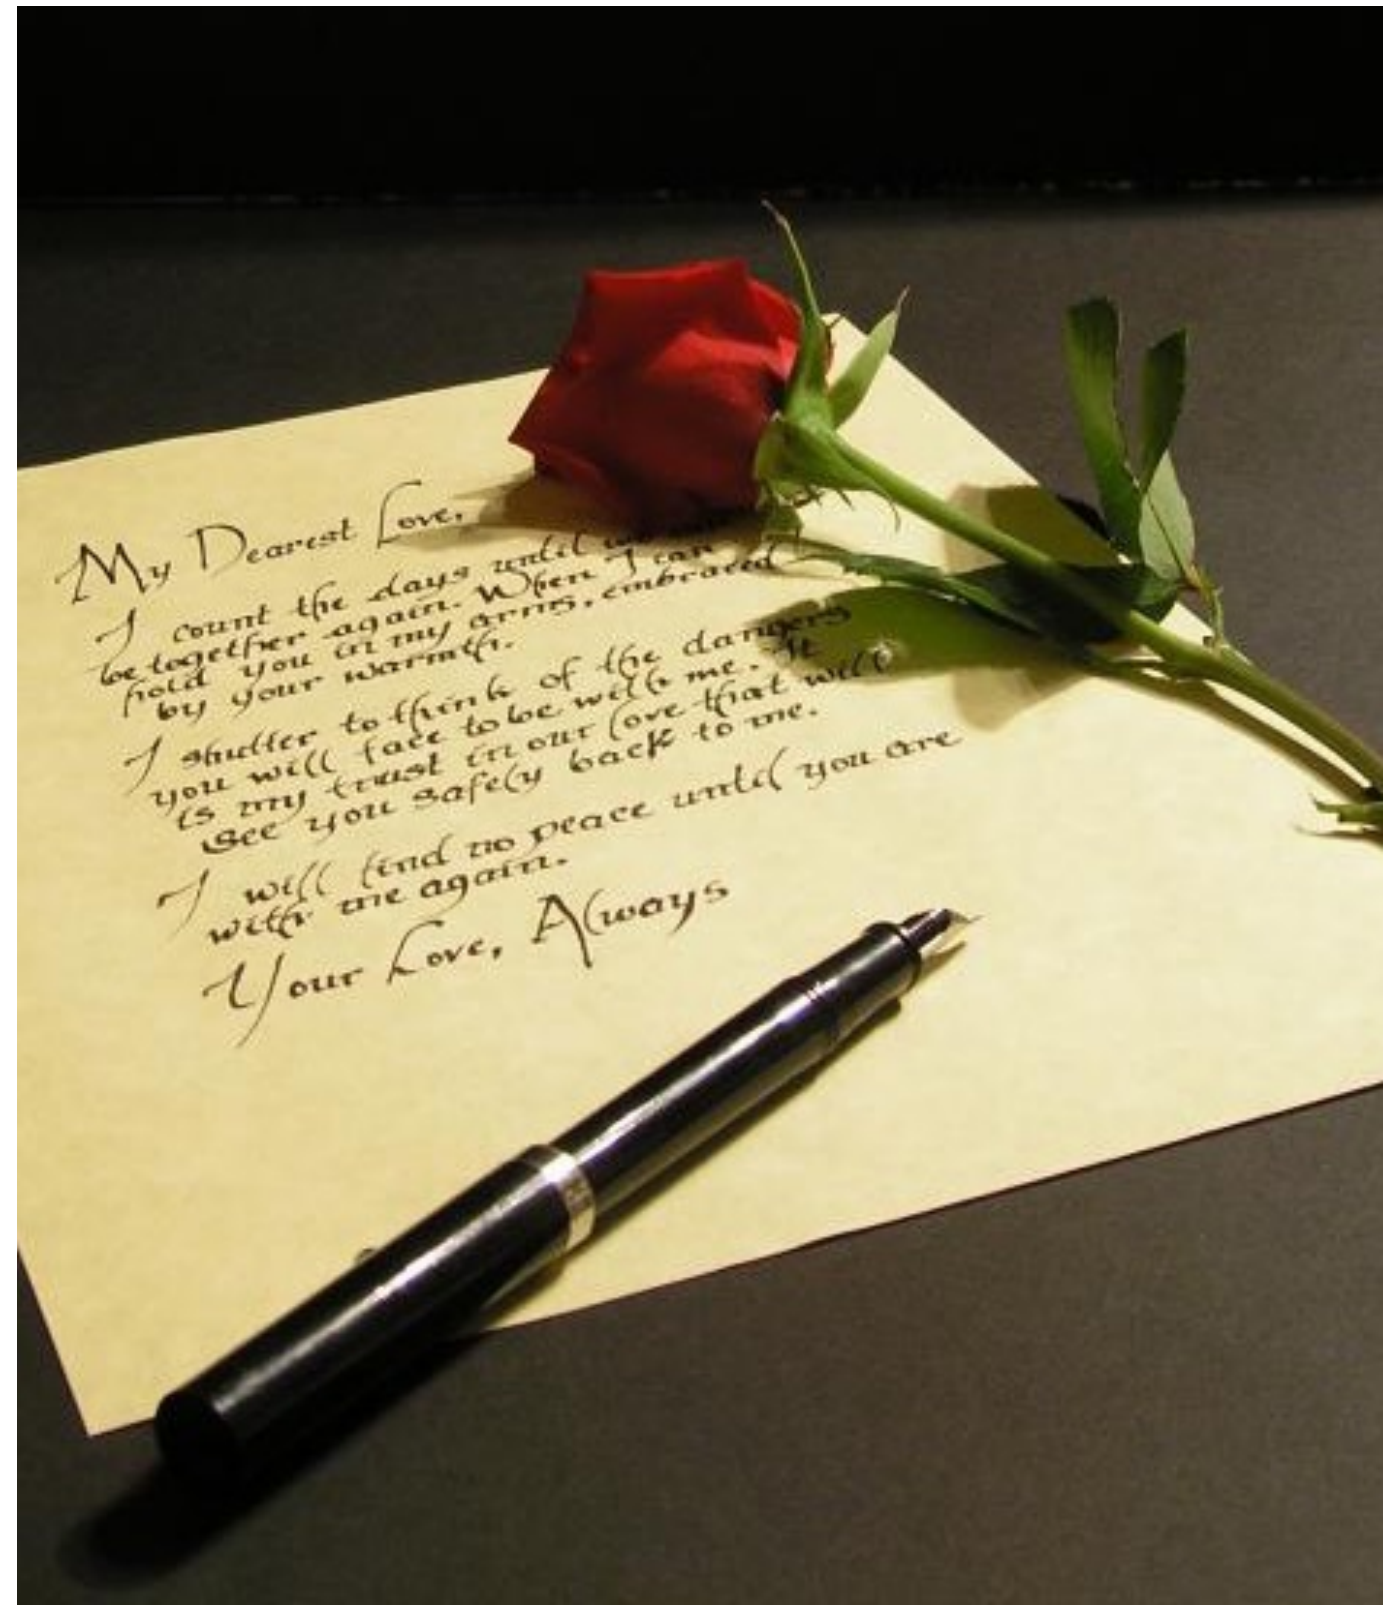 My Dearest Love,
I count the days until we
be together again. When I can
hold you in my arms, embraced
by your warmth.
I shutter to think of the dangers
you will face to be with me. It
is my trust in our love that will
see you safely back to me.
I will find no peace until you are
with me again.
Your Love, Always